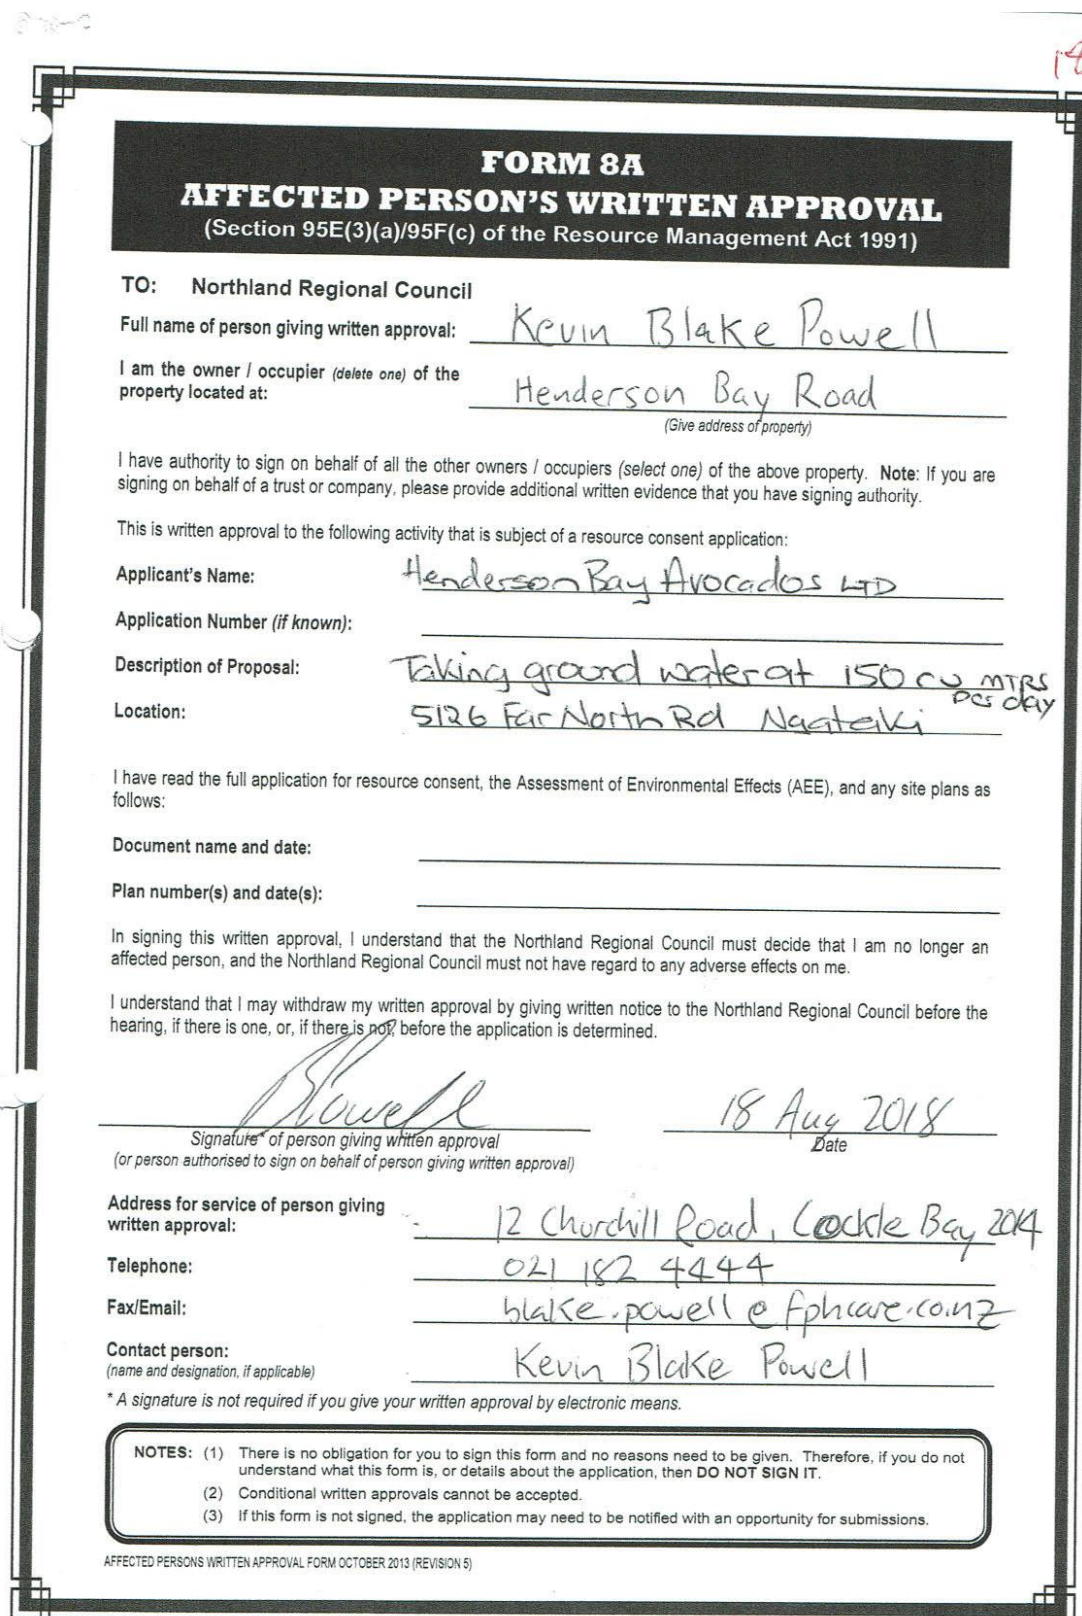 FORM 8A
AFFECTED PERSON'S WRITTEN APPROVAL
(Section 95E(3)(a)/95F(c) of the Resource Management Act 1991)
TO: Northland Regional Council
Full name of person giving written approval: Kevin Blake Powell
I am the owner / occupier (delete one) of the
property located at: Henderson Bay Road
(Give address of property)
I have authority to sign on behalf of all the other owners / occupiers (select one) of the above property. Note: If you are
signing on behalf of a trust or company, please provide additional written evidence that you have signing authority.
This is written approval to the following activity that is subject of a resource consent application:
Applicant's Name: Henderson Bay Avocados LTD
Application Number (if known):
Description of Proposal: Taking ground water at 150 cu MTRS
per day
Location: 5126 Far North Rd Ngataki
I have read the full application for resource consent, the Assessment of Environmental Effects (AEE), and any site plans as
follows:
Document name and date:
Plan number(s) and date(s):
In signing this written approval, I understand that the Northland Regional Council must decide that I am no longer an
affected person, and the Northland Regional Council must not have regard to any adverse effects on me.
I understand that I may withdraw my written approval by giving written notice to the Northland Regional Council before the
hearing, if there is one, or, if there is not, before the application is determined.
18 Aug 2018
Signature* of person giving written approval Date
(or person authorised to sign on behalf of person giving written approval)
Address for service of person giving
written approval: 12 Churchill Road, Cockle Bay 2014
Telephone: 021 182 4444
Fax/Email: blake.powell@fphcare.co.nz
Contact person: Kevin Blake Powell
(name and designation, if applicable)
* A signature is not required if you give your written approval by electronic means.
NOTES: (1) There is no obligation for you to sign this form and no reasons need to be given. Therefore, if you do not
understand what this form is, or details about the application, then DO NOT SIGN IT.
(2) Conditional written approvals cannot be accepted.
(3) If this form is not signed, the application may need to be notified with an opportunity for submissions.
AFFECTED PERSONS WRITTEN APPROVAL FORM OCTOBER 2013 (REVISION 5)